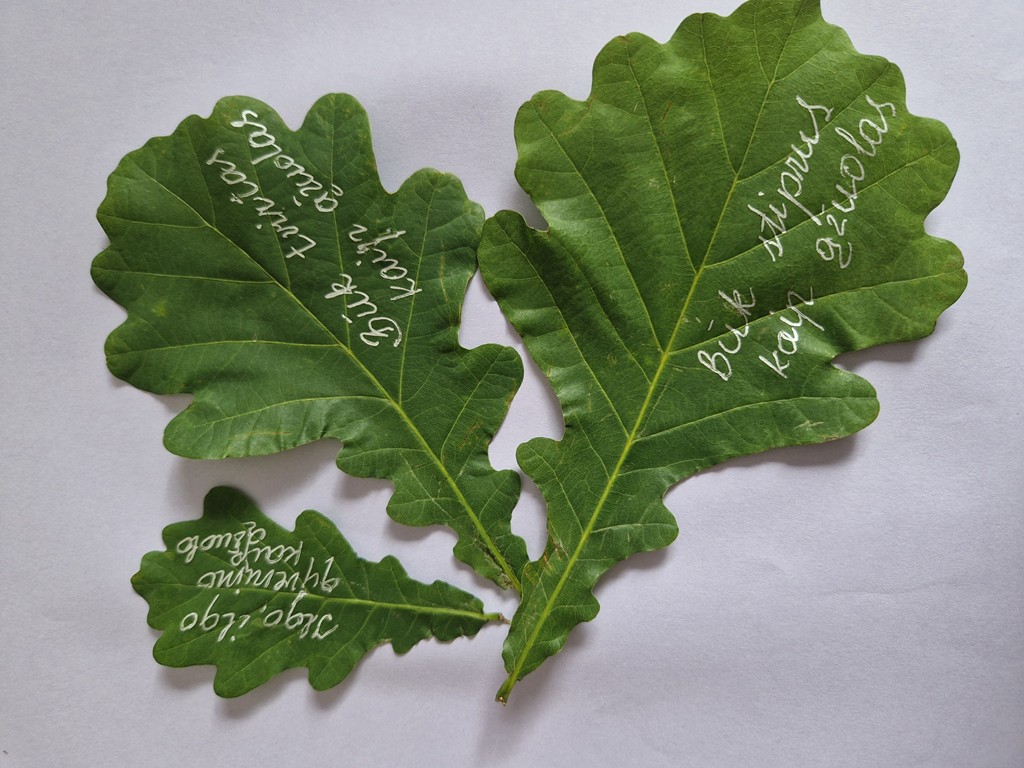 Būk tvirtas
kaip ąžuolas
Būk stiprus
kaip ąžuolas
Ilgo, ilgo
gyvenimo
kaip
ąžuolo